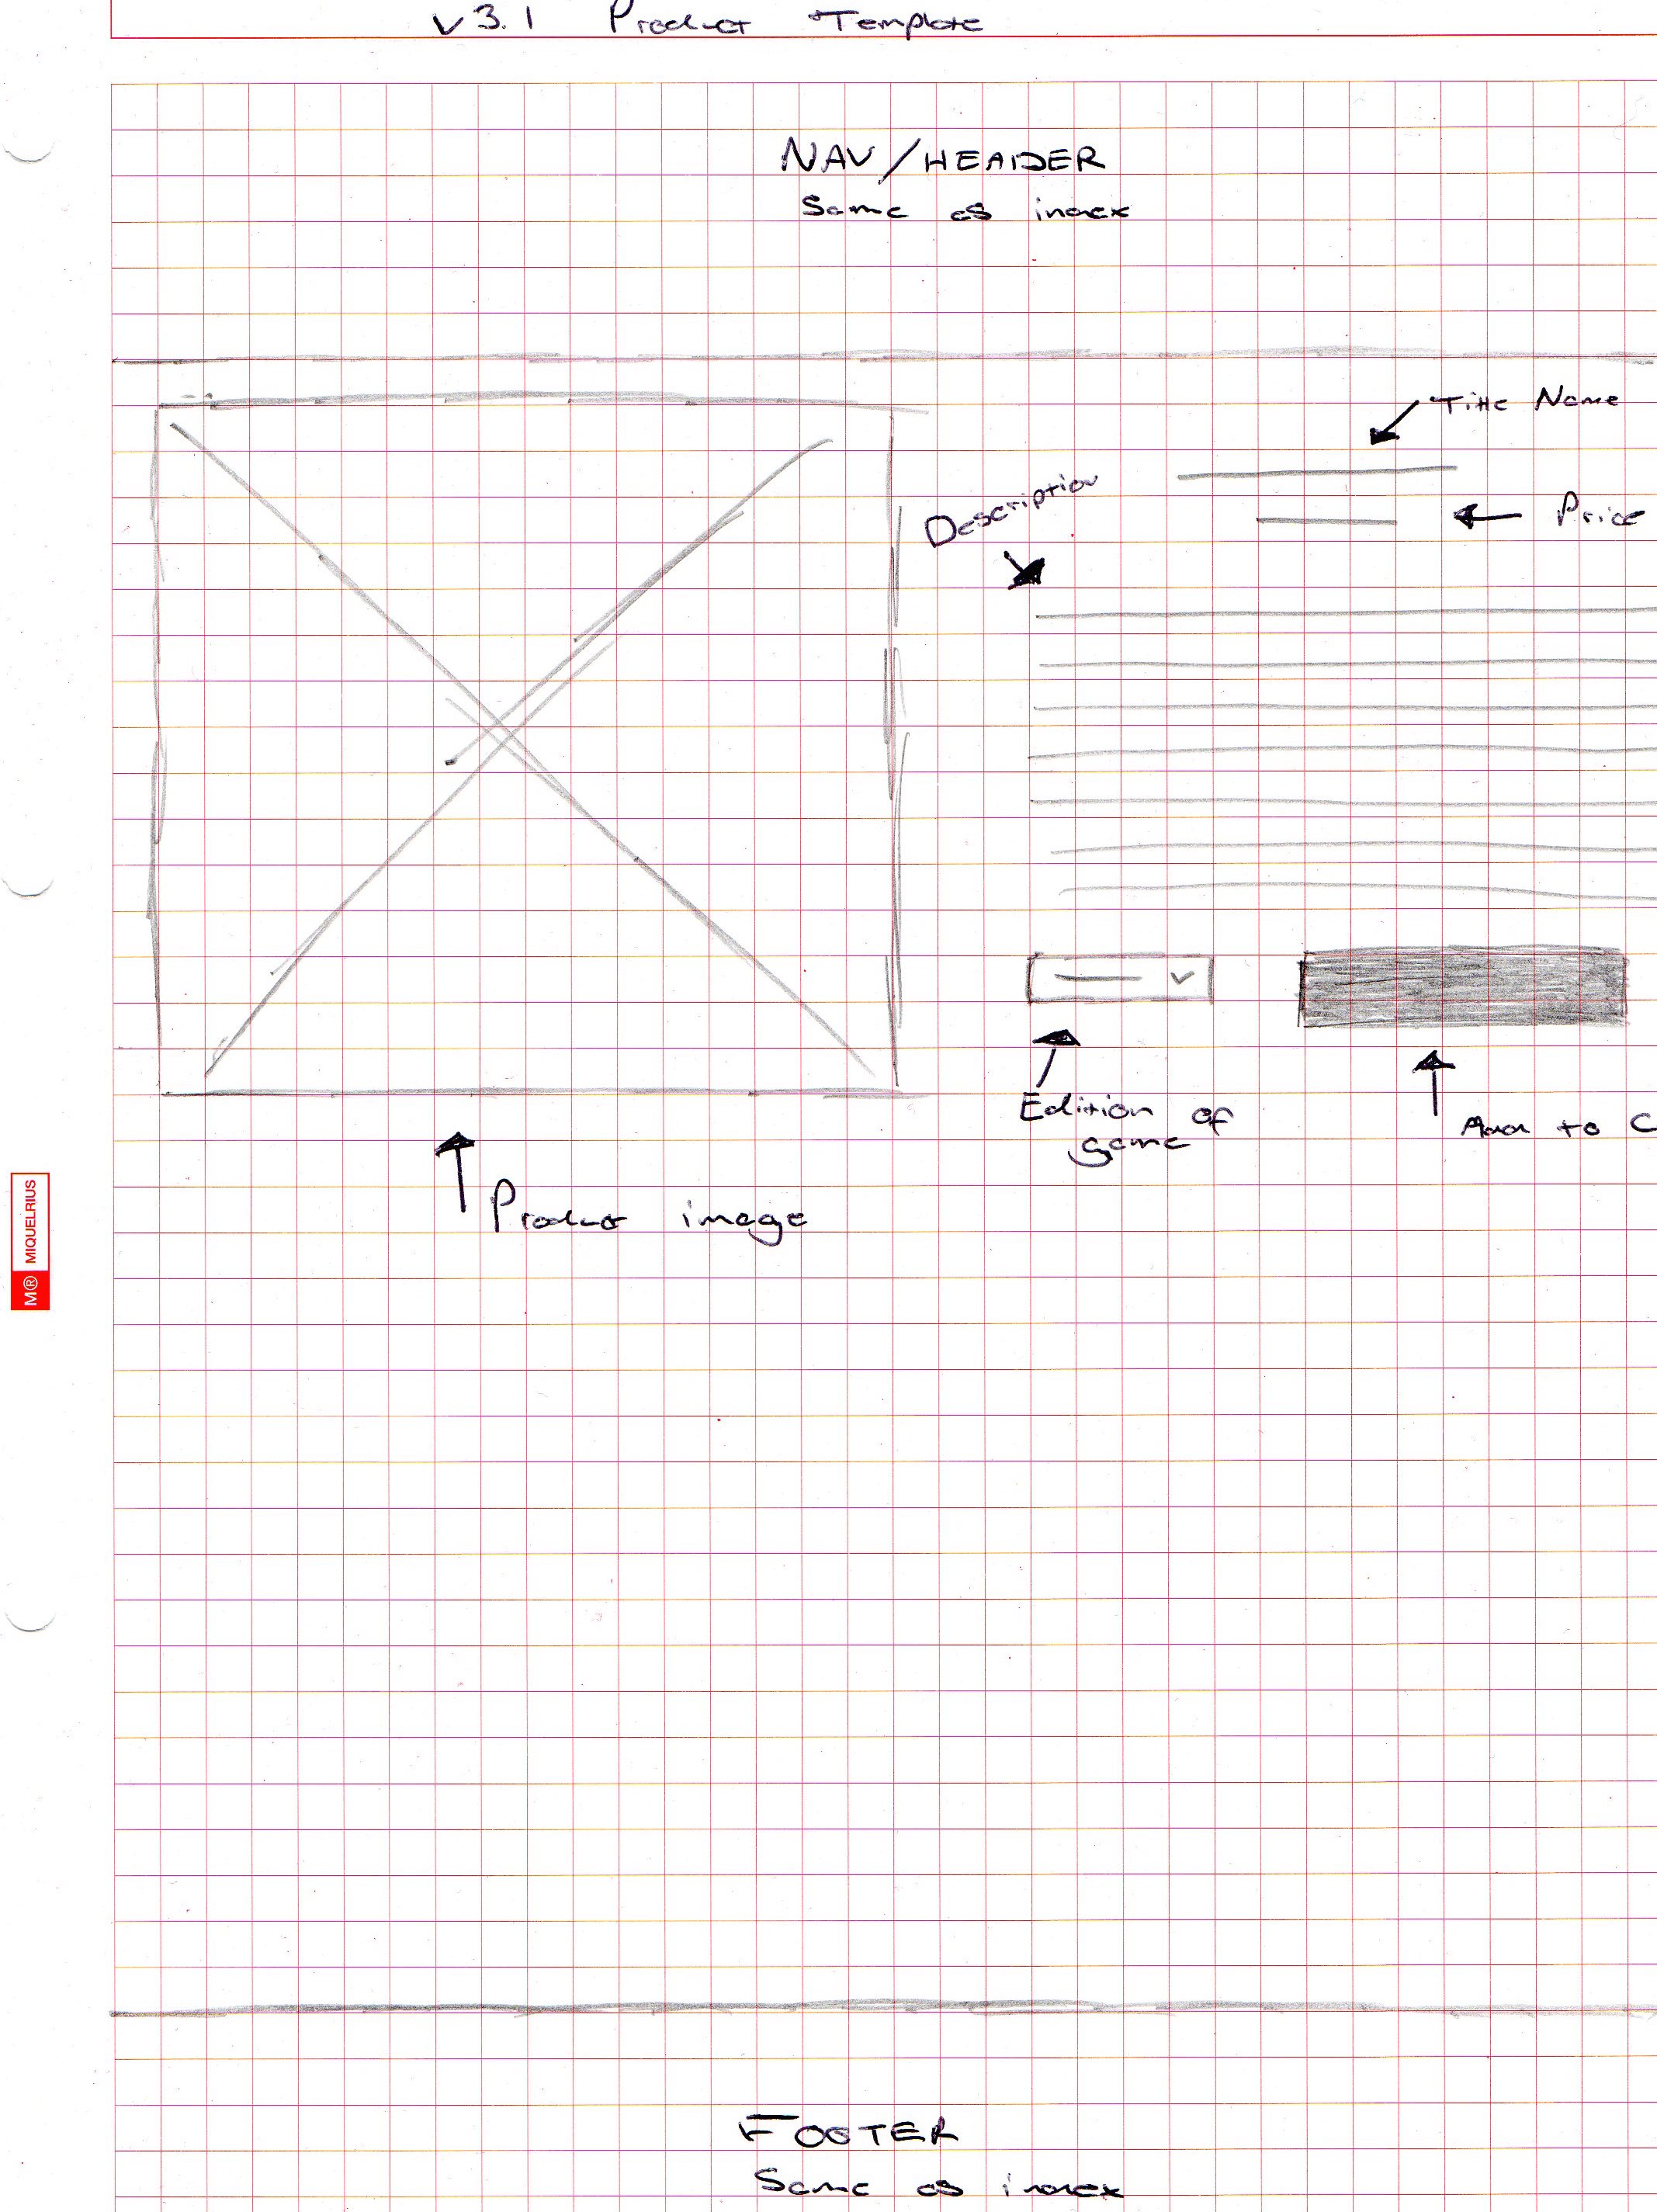 v3.1 Product Template
NAV/HEADER
Same as index
Title Name
Description
Price
Edition of
game
Add to C
Product image
M® MIQUELRIUS
FOOTER
Same as index